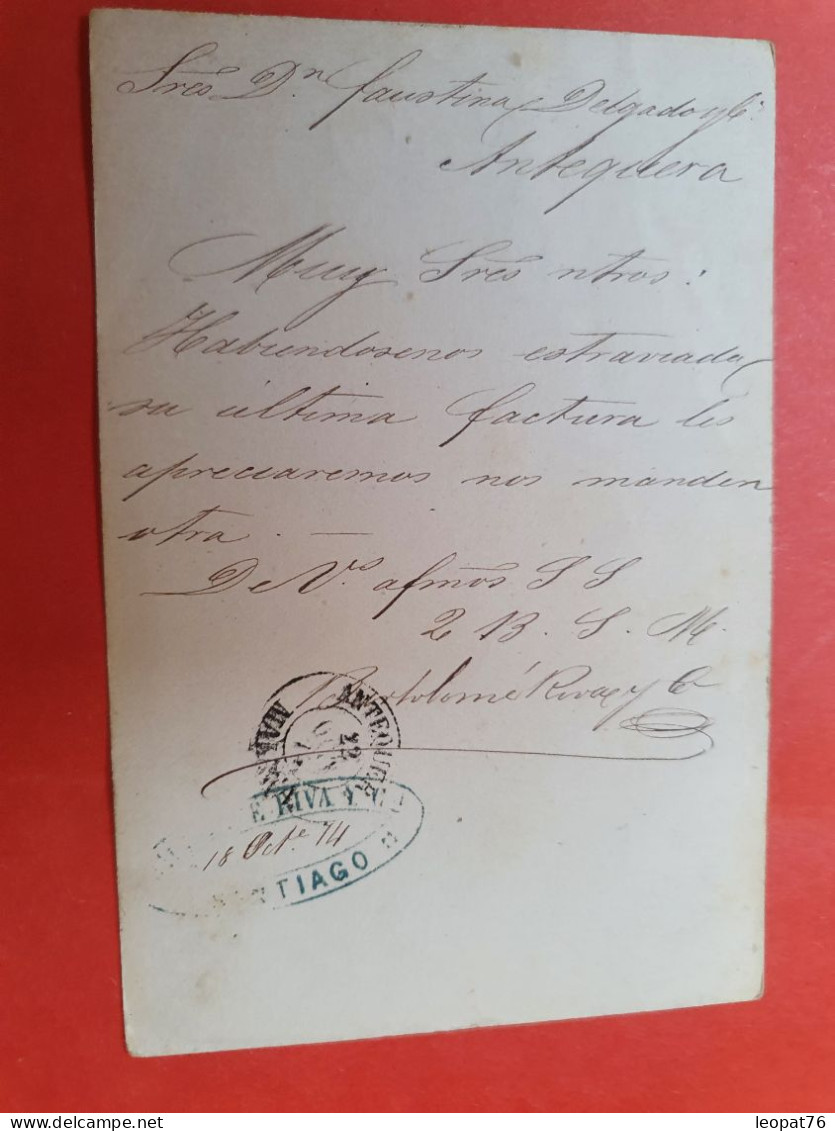 Sres Dn. Faustina Delgado y Ca.
Antequera
Muy Sres ntros:
Habiendosenos estraviada
su última factura les
apreciaremos nos manden
otra. —
De Vs. afmos S S
2 B. S. M.
Bartolomé Riva y Ca
ANTEQUERA
RIVA Y
18 Octe 74
SANTIAGO
leopat76